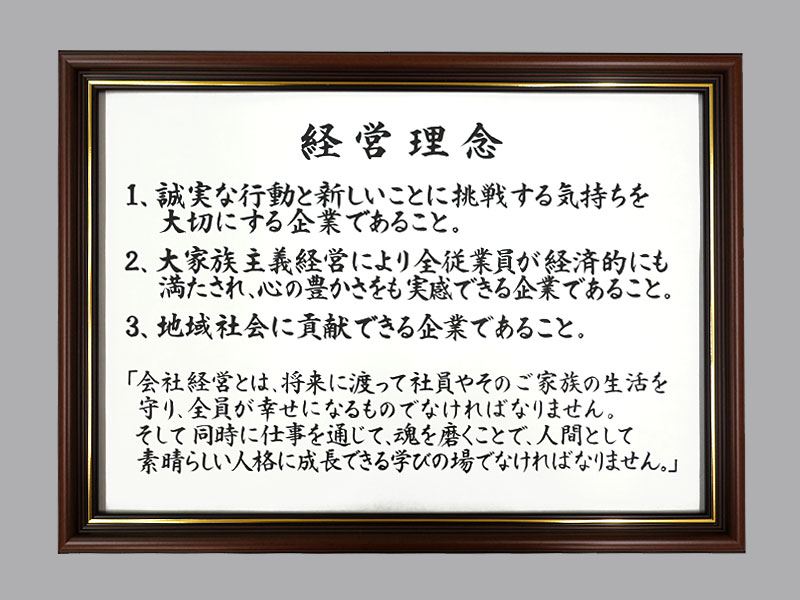 経営理念
1、誠実な行動と新しいことに挑戦する気持ちを
大切にする企業であること。
2、大家族主義経営により全従業員が経済的にも
満たされ、心の豊かさをも実感できる企業であること。
3、地域社会に貢献できる企業であること。
「会社経営とは、将来に渡って社員やそのご家族の生活を
守り、全員が幸せになるものでなければなりません。
そして同時に仕事を通じて、魂を磨くことで、人間として
素晴らしい人格に成長できる学びの場でなければなりません。」